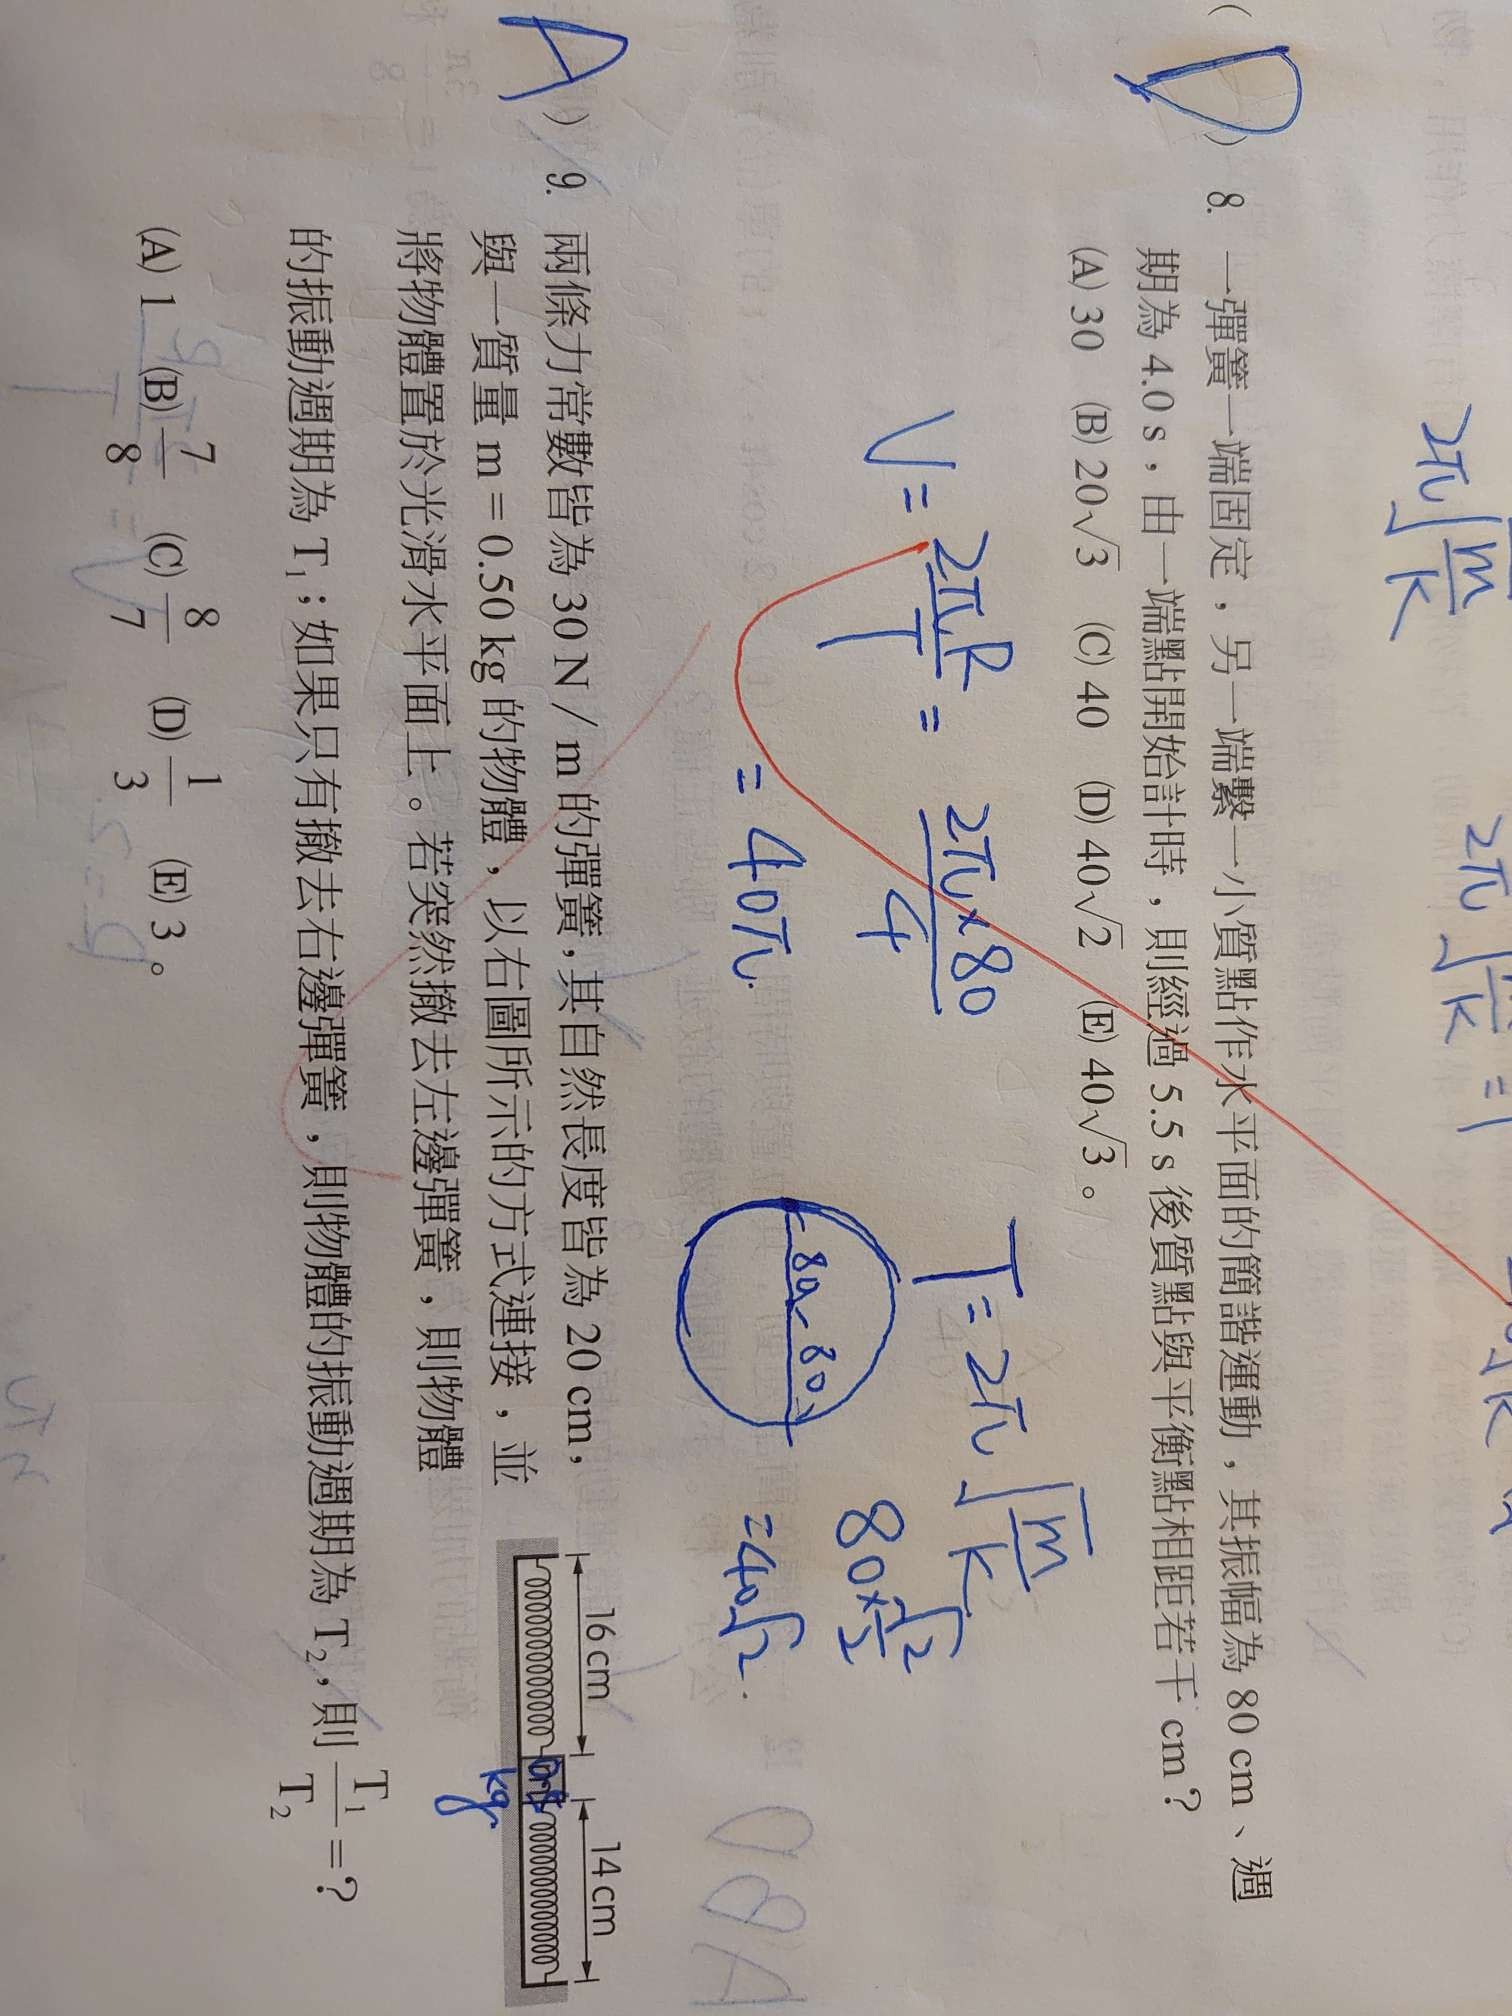 2π√m/k
2π√m/k = 1
(D) 8. 一彈簧一端固定，另一端繫一小質點作水平面的簡諧運動，其振幅為 80 cm、週
期為 4.0 s，由一端點開始計時，則經過 5.5 s 後質點與平衡點相距若干 cm？
(A) 30 (B) 20√3 (C) 40 (D) 40√2 (E) 40√3。
V = 2πR/T = 2π×80/4
= 40π
T = 2π√m/k
80 80
80×√2/2
=40√2
A) 9. 兩條力常數皆為 30 N / m 的彈簧，其自然長度皆為 20 cm，
與一質量 m = 0.50 kg 的物體，以右圖所示的方式連接，並
將物體置於光滑水平面上。若突然撤去左邊彈簧，則物體
的振動週期為 T₁；如果只有撤去右邊彈簧，則物體的振動週期為 T₂，則 T₁/T₂ = ？
(A) 1 (B) 7/8 (C) 8/7 (D) 1/3 (E) 3。
16 cm 14 cm
kg